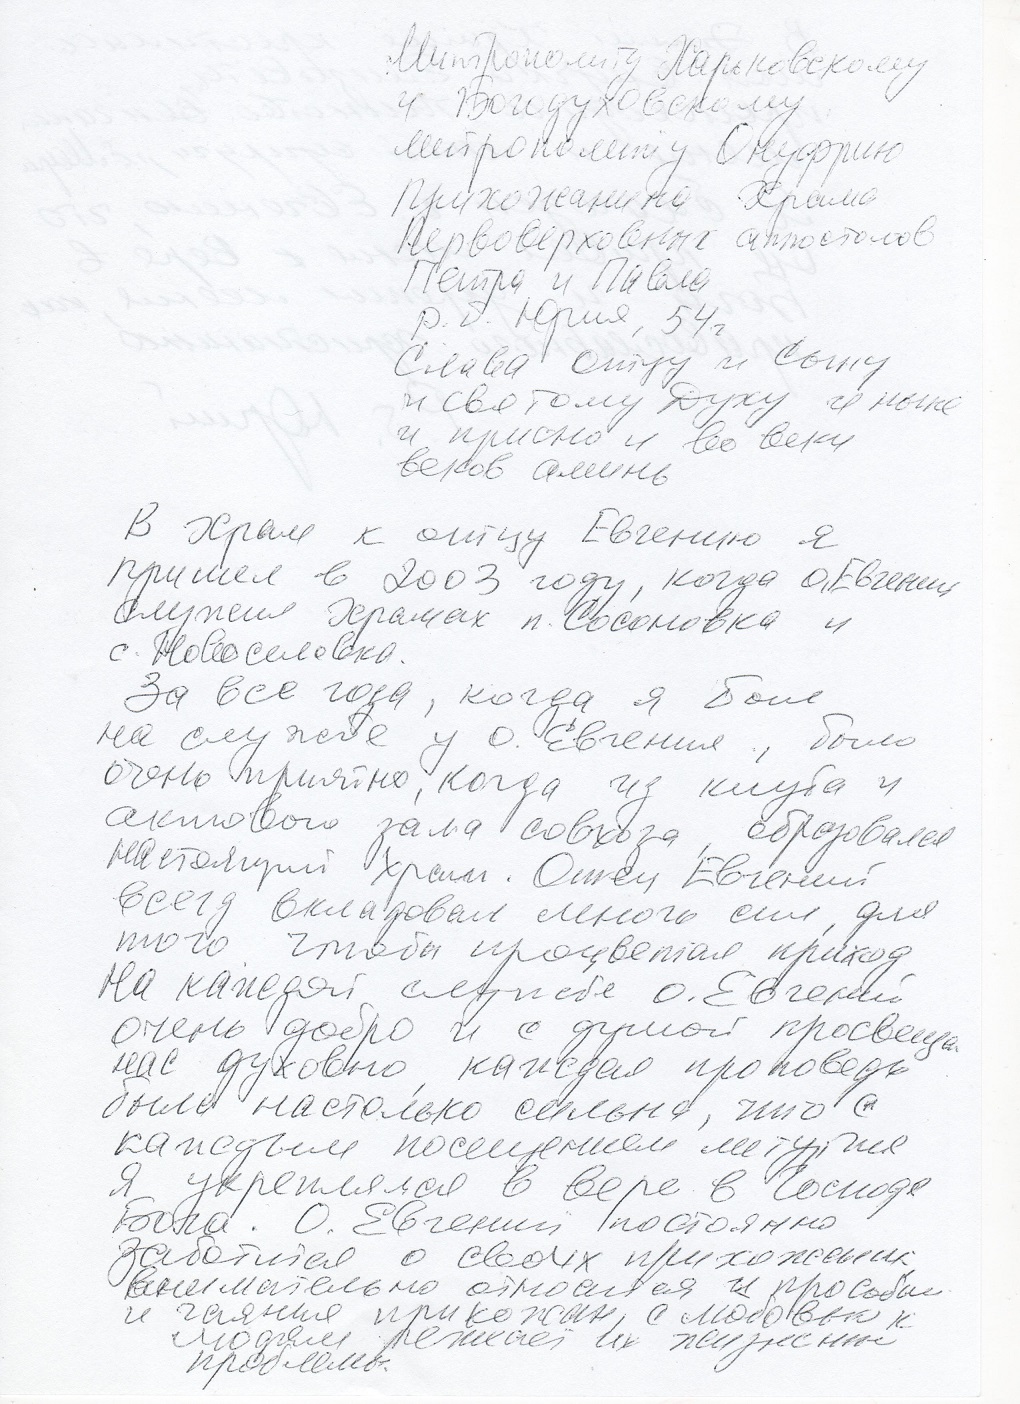 Митрополиту Харьковскому
и Богодуховскому
митрополиту Онуфрию
Прихожанина Храма
Первоверховных аппостолов
Петра и Павла
р.б. Юрия, 54г
Слава отцу и Сыну
и святому Духу и ныне
и присно и во веки
веков аминь
В Храм к отцу Евгению я
пришел в 2003 году, когда о.Евгений
служил Храмах п. Сосоновка и
с. Новоселовка.
За все года, когда я был
на службе у о. Евгения, было
очень приятно, когда из клуба и
актового зала совхоза, образовался
настоящий Храм. Отец Евгений
всегд вкладовал много сил, для
того чтобы процветал приход
На каждой службе о. Евгений
очень добро и с душой просвеща
нас духовно, каждая проповедь
была настолько сильна, что с
каждым посещением литургие
Я укреплялся в вере в Господа
Бога. О. Евгений постоянно
заботится о своих прихожанах,
внимательно относится и прособам
и чаяния прихожан, с любовью к
людям решает их жизненые
проблемы.